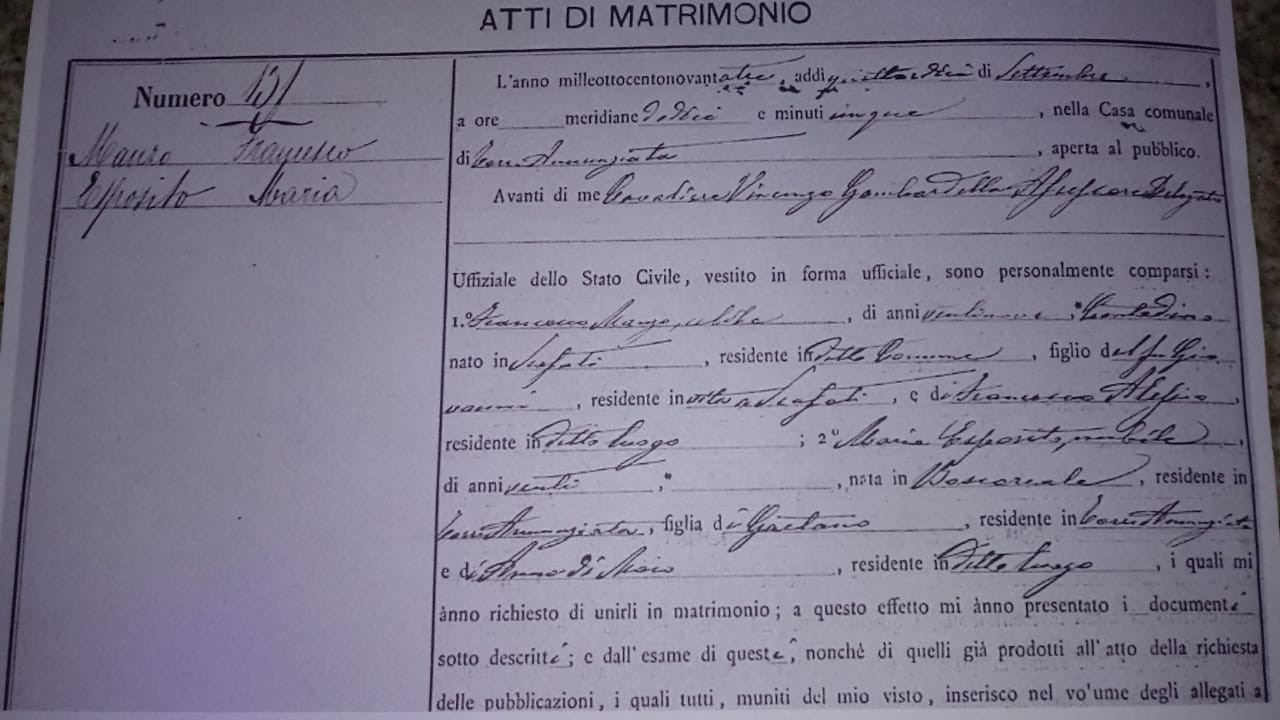 ATTI DI MATRIMONIO
Numero 151
Mauro Francesco
Esposito Maria
L'anno milleottocentonovantatre, addi diciotto di Settembre,
a ore meridiane dodici e minuti cinque, nella Casa comunale
di Torre Annunziata, aperta al pubblico.
Avanti di me Cavaliere Vincenzo Gambardella Assessore Delegato
Uffiziale dello Stato Civile, vestito in forma ufficiale, sono personalmente comparsi:
1.º Francesco celibe, di anni ventinove, Contadino
nato in Scafati, residente in detto Comune, figlio del fu Gio
vanni, residente in vita a Scafati, e di Francesca
residente in detto luogo; 2º Maria Esposito, nubile,
di anni venti, nata in Boscoreale, residente in
Torre Annunziata, figlia di Gaetano, residente in Torre Annunziata
e di Anna di Maio, residente in detto luogo, i quali mi
ànno richiesto di unirli in matrimonio; a questo effetto mi ànno presentato i documenti
sotto descritti; e dall'esame di questi, nonchè di quelli già prodotti all'atto della richiesta
delle pubblicazioni, i quali tutti, muniti del mio visto, inserisco nel vo'ume degli allegati a